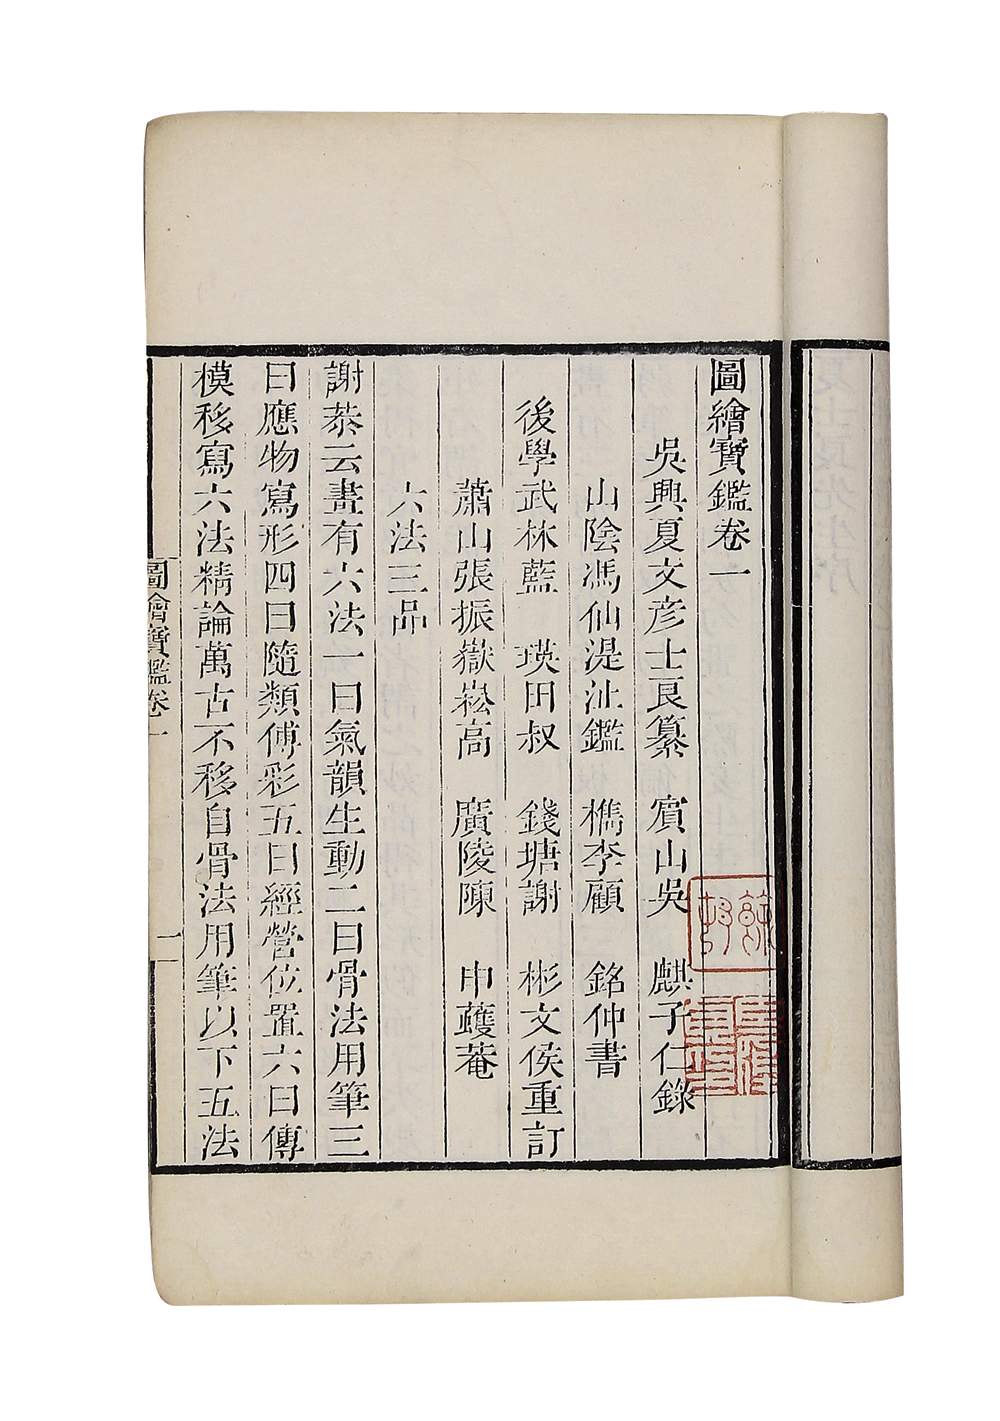 圖繪寶鑑卷一
吳興夏文彦士良纂　賓山吳　麒子仁錄
山陰馮仙湜沚鑑　檇李顧　銘仲書
後學武林藍　瑛田叔　錢塘謝　彬文侯重訂
蕭山張振嶽崧高　廣陵陳　申蘧菴
六法三品
謝恭云畫有六法一曰氣韻生動二曰骨法用筆三
曰應物寫形四曰隨類傅彩五曰經營位置六曰傳
模移寫六法精論萬古不移自骨法用筆以下五法
圖繪寶鑑卷一
一